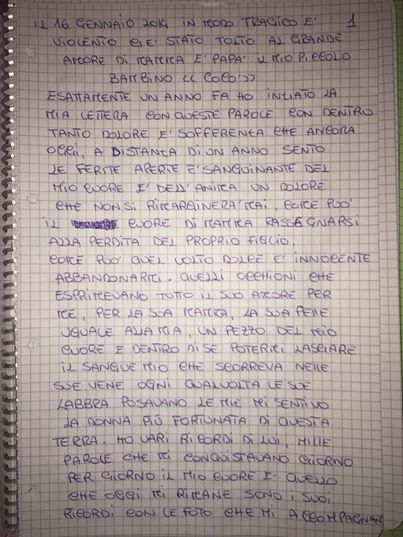 1
IL 16 GENNAIO 2014 IN MODO TRAGICO E'
VIOLENTO CI E' STATO TOLTO AL GRANDE
AMORE DI MAMMA E' PAPA' IL MIO PICCOLO
BAMBINO << COCO' >>
ESATTAMENTE UN ANNO FA HO INIZIATO LA
MIA LETTERA CON QUESTE PAROLE CON DENTRO
TANTO DOLORE E' SOFFERENZA CHE ANCORA
OGGI, A DISTANZA DI UN ANNO SENTO
LE FERITE APERTE E' SANGUINANTE DEL
MIO CUORE E' DELL'ANIMA UN DOLORE
CHE NON SI RIMARGINERA' MAI. COME PUO'
IL CUORE DI MAMMA RASSEGNARSI
ALLA PERDITA DEL PROPRIO FIGLIO.
COME PUO' QUEL VOLTO DOLCE E' INNOCENTE
ABBANDONARMI. QUEGLI OCCHIONI CHE
ESPRIMEVANO TUTTO IL SUO AMORE PER
ME, PER LA SUA MAMMA, LA SUA PELLE
UGUALE ALLA MIA, UN PEZZO DEL MIO
CUORE E DENTRO DI SE POTERMI LASCIARE
IL SANGUE MIO CHE SCORREVA NELLE
SUE VENE OGNI QUALVOLTA LE SUE
LABBRA POSAVANO LE MIE MI SENTIVO
LA DONNA PIÚ FORTUNATA DI QUESTA
TERRA. HO VARI RICORDI DI LUI, MILLE
PAROLE CHE MI CONQUISTAVANO GIORNO
PER GIORNO IL MIO CUORE E' QUELLO
CHE OGGI MI RIMANE SONO I SUOI
RICORDI CON LE FOTO CHE MI ACCOMPAGNAN